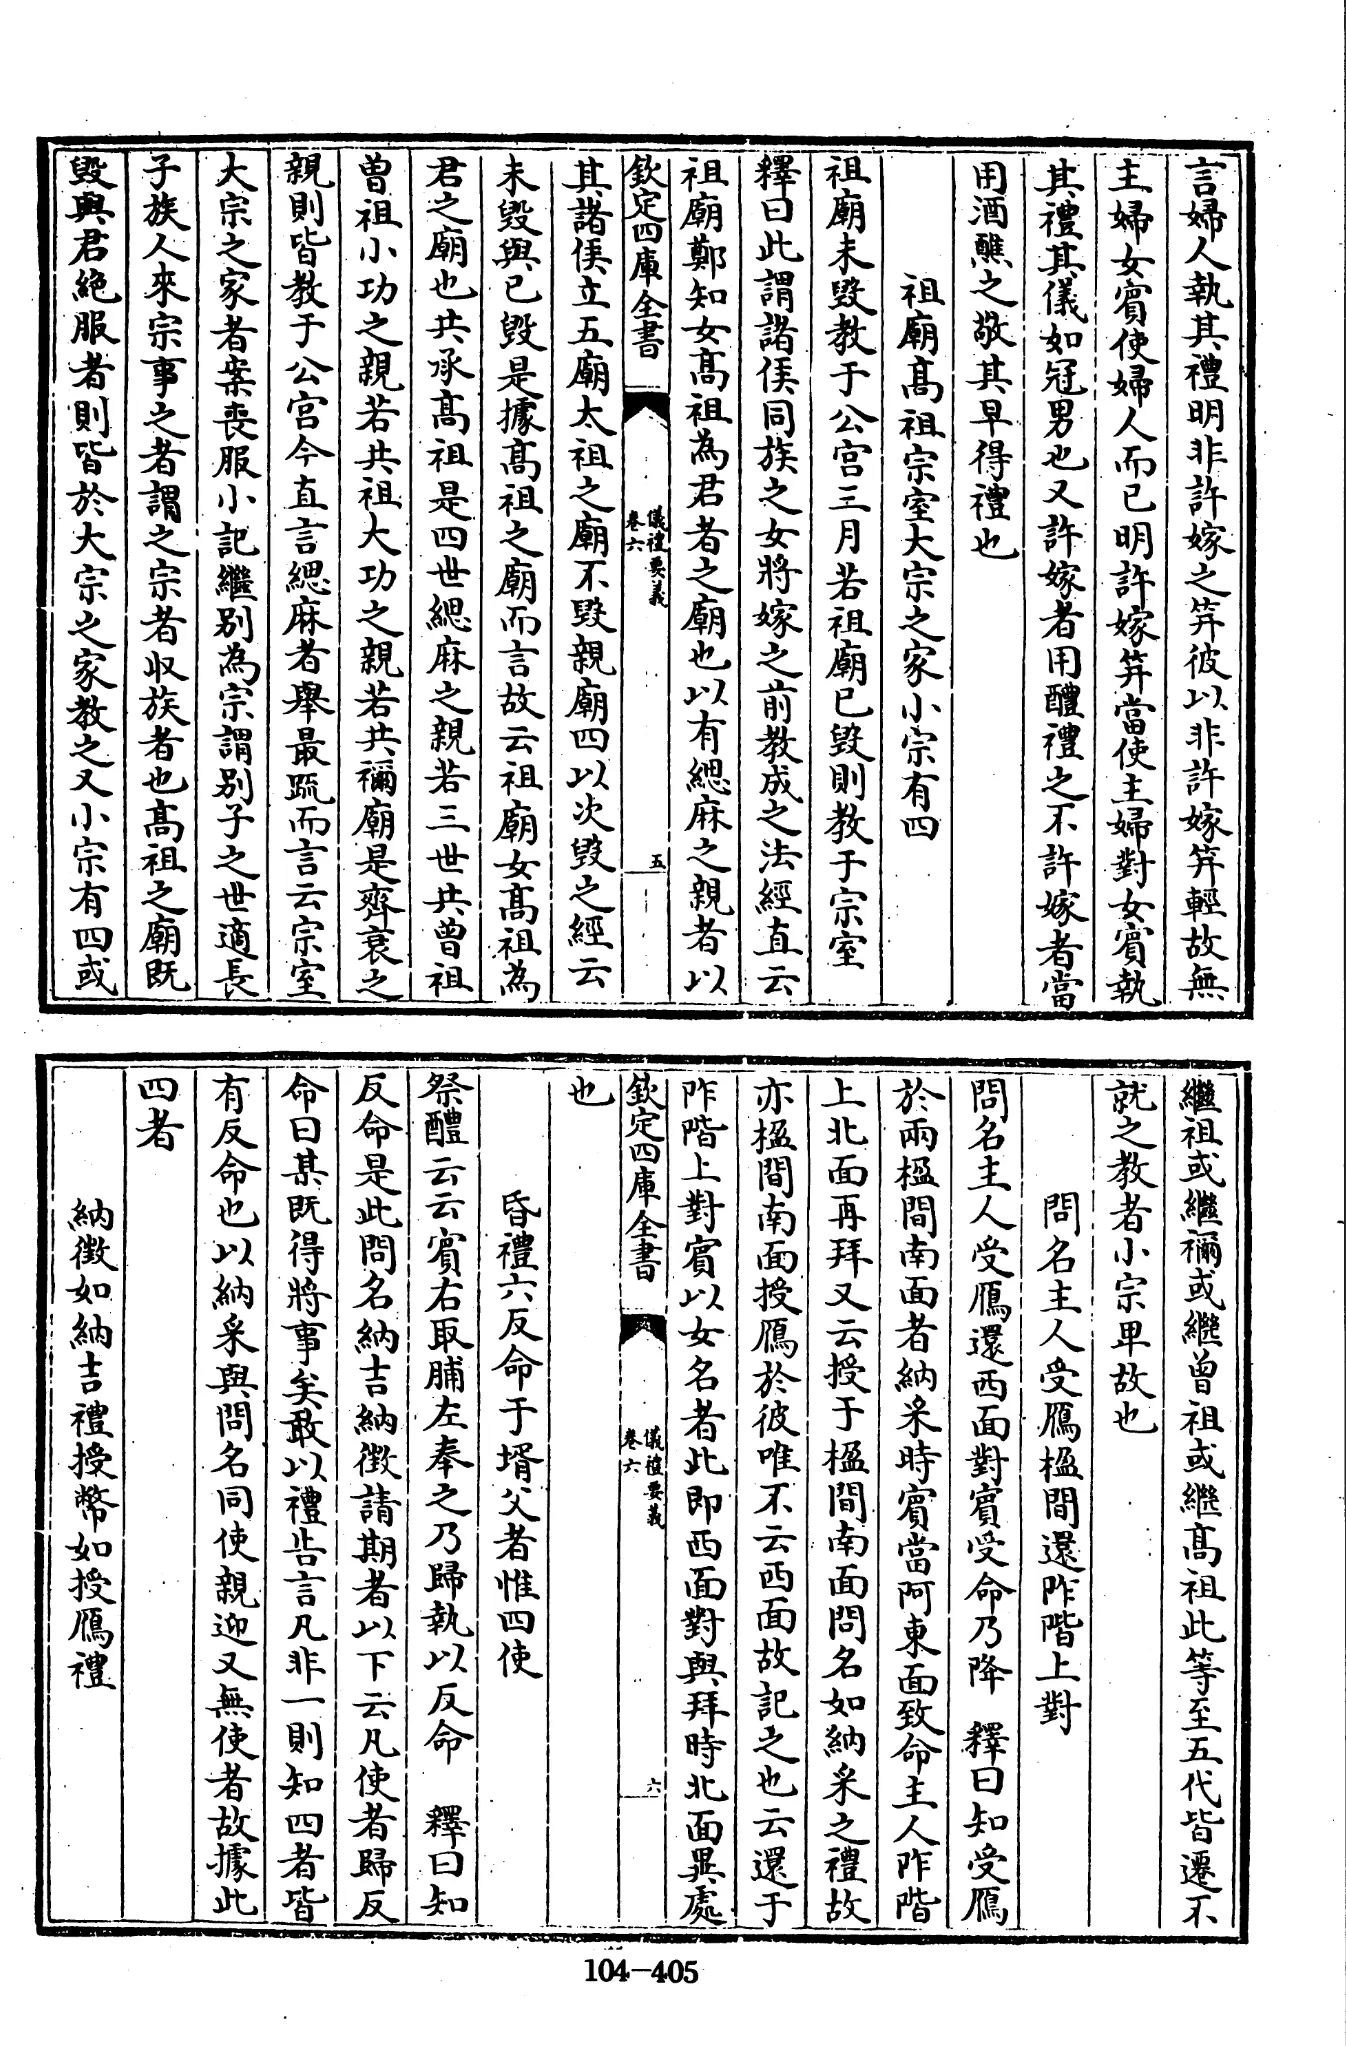 言婦人執其禮明非許嫁之笄彼以非許嫁笄輕故無
主婦女賓使婦人而已明許嫁笄當使主婦對女賓執
其禮其儀如冠男也又許嫁者用醴禮之不許嫁者當
用酒醮之敬其早得禮也
祖廟髙祖宗室大宗之家小宗有四
祖廟未毀教于公宫三月若祖廟已毀則教于宗室
釋曰此謂諸侯同族之女將嫁之前教成之法經直云
祖廟鄭知女髙祖為君者之廟也以有緦麻之親者以
欽定四庫全書
儀禮要義
卷六
五
其諸侯立五廟太祖之廟不毀親廟四以次毀之經云
未毀與已毀是據髙祖之廟而言故云祖廟女髙祖為
君之廟也共承髙祖是四世緦麻之親若三世共曾祖
曾祖小功之親若共祖大功之親若共禰廟是齊衰之
親則皆教于公宫今直言緦麻者舉最疏而言云宗室
大宗之家者案喪服小記繼别為宗謂别子之世適長
子族人來宗事之者謂之宗者収族者也髙祖之廟既
毀與君絶服者則皆於大宗之家教之又小宗有四或
繼祖或繼禰或繼曾祖或繼髙祖此等至五代皆遷不
就之教者小宗卑故也
問名主人受鴈楹間還阼階上對
問名主人受鴈還西面對賓受命乃降 釋曰知受鴈
於兩楹間南面者納采時賓當阿東面致命主人阼階
上北面再拜又云授于楹間南面問名如納采之禮故
亦楹間南面授鴈於彼唯不云西面故記之也云還于
阼階上對賓以女名者此即西面對與拜時北面異處
欽定四庫全書
儀禮要義
卷六
六
也
昏禮六反命于壻父者惟四使
祭醴云云賓右取脯左奉之乃歸執以反命 釋曰知
反命是此問名納吉納徵請期者以下云凡使者歸反
命曰某既得將事矣敢以禮告言凡非一則知四者皆
有反命也以納采與問名同使親迎又無使者故據此
四者
納徵如納吉禮授幣如授鴈禮
104-405